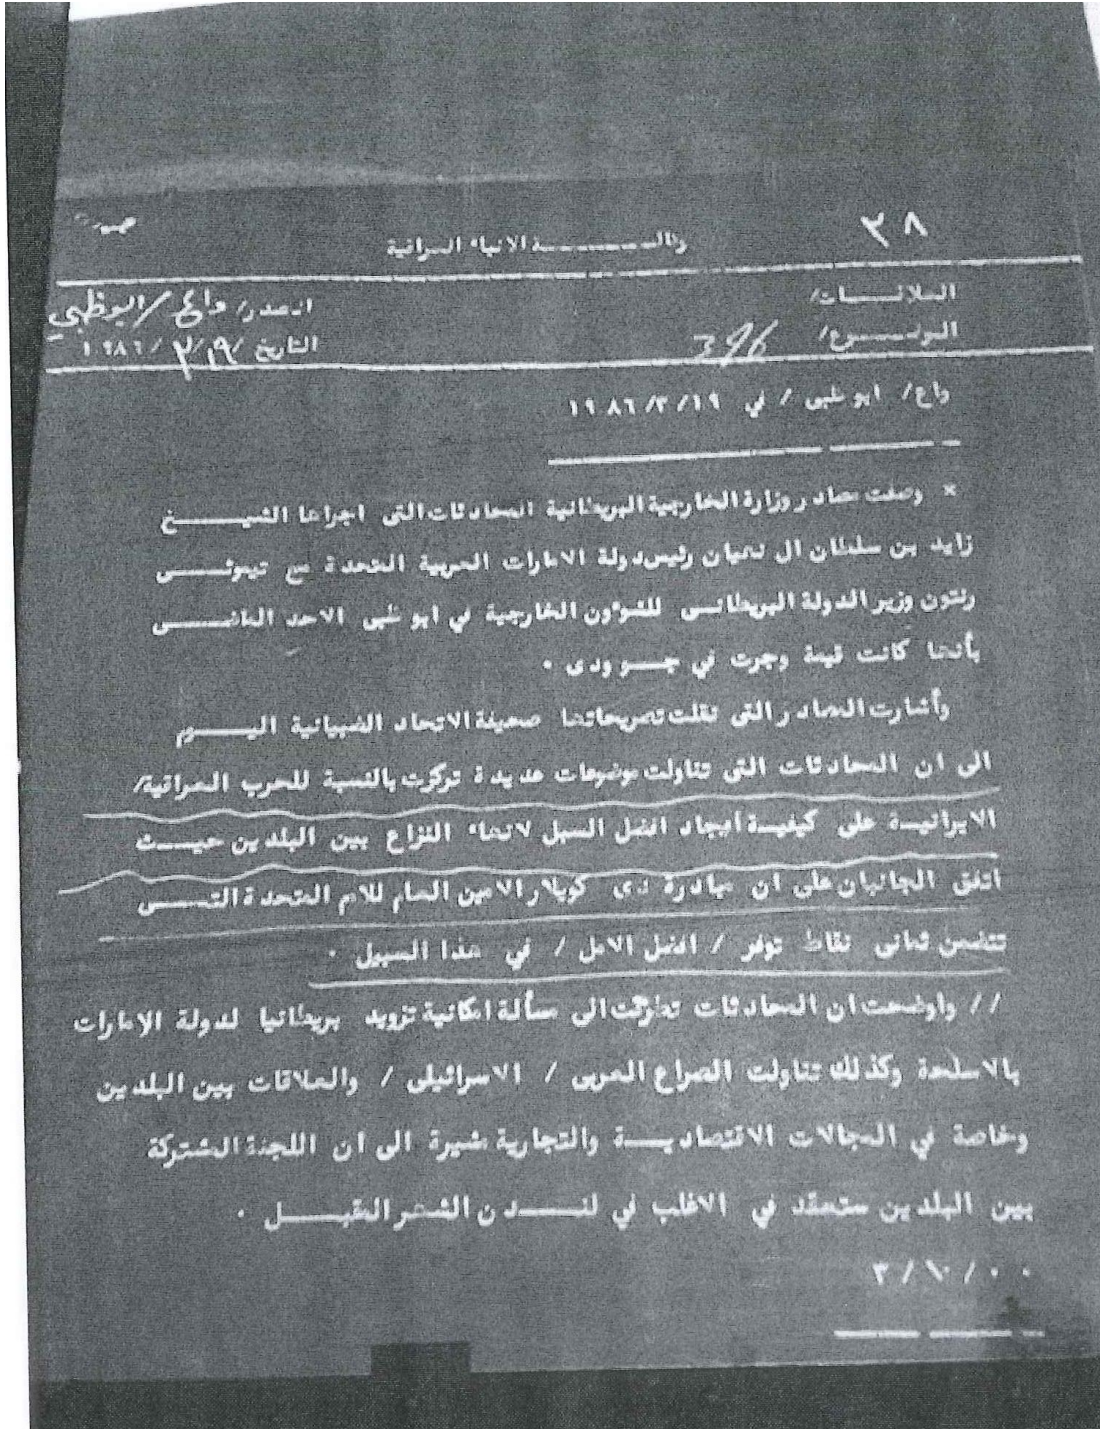 ٣٨
وكالـــــــة الانباء العراقية
العلاقــــات/
المصدر/ واع/ابوظبي
الموضـــوع/ 396
التاريخ ١٩/ ٣/ ١٩٨٦
واع/ ابو ظبي / في ١٩/ ٣/ ١٩٨٦
× وصفت مصادر وزارة الخارجية البريطانية المحادثات التي اجراها الشيـــــخ
زايد بن سلطان ال نهيان رئيس دولة الامارات العربية المتحدة مع تيموثـــــي
رنتون وزير الدولة البريطانـي للشؤون الخارجية في ابو ظبي الاحد الماضـــــي
بأنها كانت قيمة وجرت في جـــو ودى .
وأشارت المصادر التي نقلت تصريحاتها صحيفة الاتحاد الضبيانية اليـــــوم
الى ان المحادثات التي تناولت موضوعات عديدة تركزت بالنسبة للحرب العراقية/
الايرانيـة على كيفيـة أيجاد افضل السبل لانهاء النزاع بين البلدين حيـــث
اتفق الجانبان على ان مبادرة دى كويلار الامين العام للامم المتحدة التـــــي
تتضمن ثماني نقاط توفر / افضل الامل / في هذا السبيل .
// واوضحت ان المحادثات تطرقت الى مسألة امكانية تزويد بريطانيا لدولة الامارات
بالاسلحة وكذلك تناولت الصراع العربي / الاسرائيلي / والعلاقات بين البلدين
وخاصة في المجالات الاقتصاديـــة والتجارية مشيرة الى ان اللجنة المشتركة
بين البلدين ستعقد في الاغلب في لنـــدن الشهر المقبـــــل .
٠٠/ ١٠/ ٣